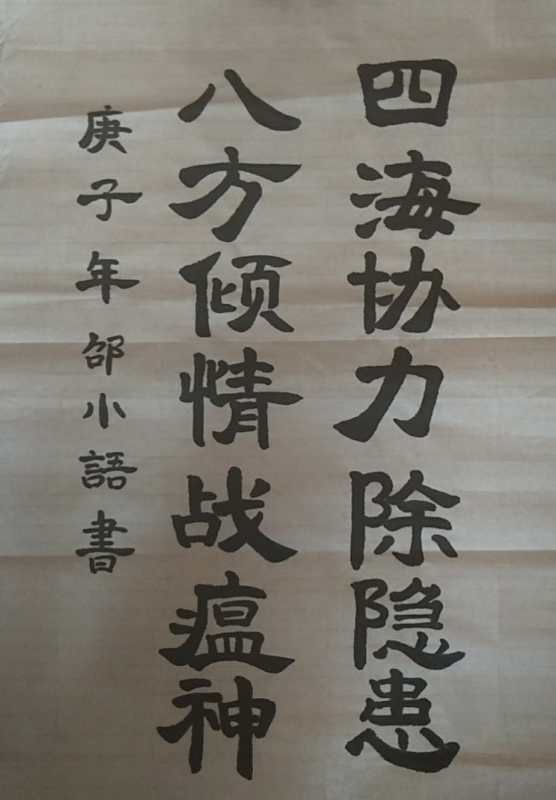 四海协力除隐患
八方倾情战瘟神
庚子年邵小語書